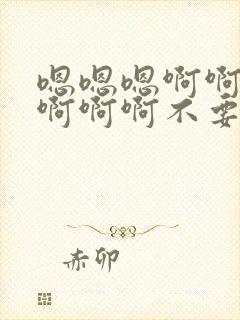 嗯嗯嗯啊啊
啊啊啊不要
赤卯